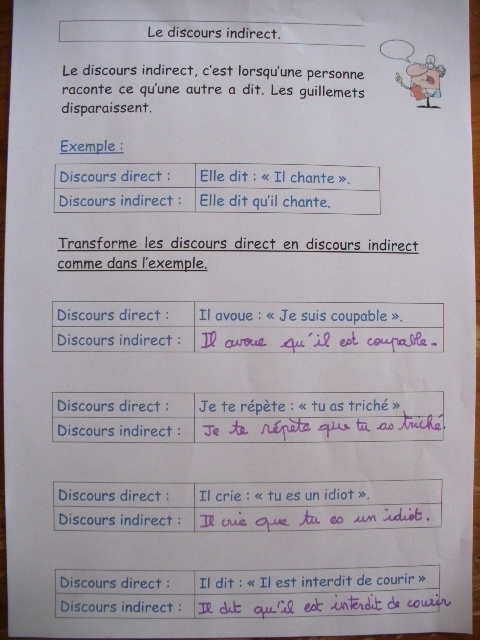 Le discours indirect.
Le discours indirect, c'est lorsqu'une personne
raconte ce qu'une autre a dit. Les guillemets
disparaissent.
Exemple :
Discours direct : Elle dit : « Il chante ».
Discours indirect : Elle dit qu'il chante.
Transforme les discours direct en discours indirect
comme dans l'exemple.
Discours direct : Il avoue : « Je suis coupable ».
Discours indirect : Il avoue qu'il est coupable.
Discours direct : Je te répète : « tu as triché ».
Discours indirect : Je te répète que tu as triché.
Discours direct : Il crie : « tu es un idiot ».
Discours indirect : Il crie que tu es un idiot.
Discours direct : Il dit : « Il est interdit de courir »
Discours indirect : Il dit qu'il est interdit de courir